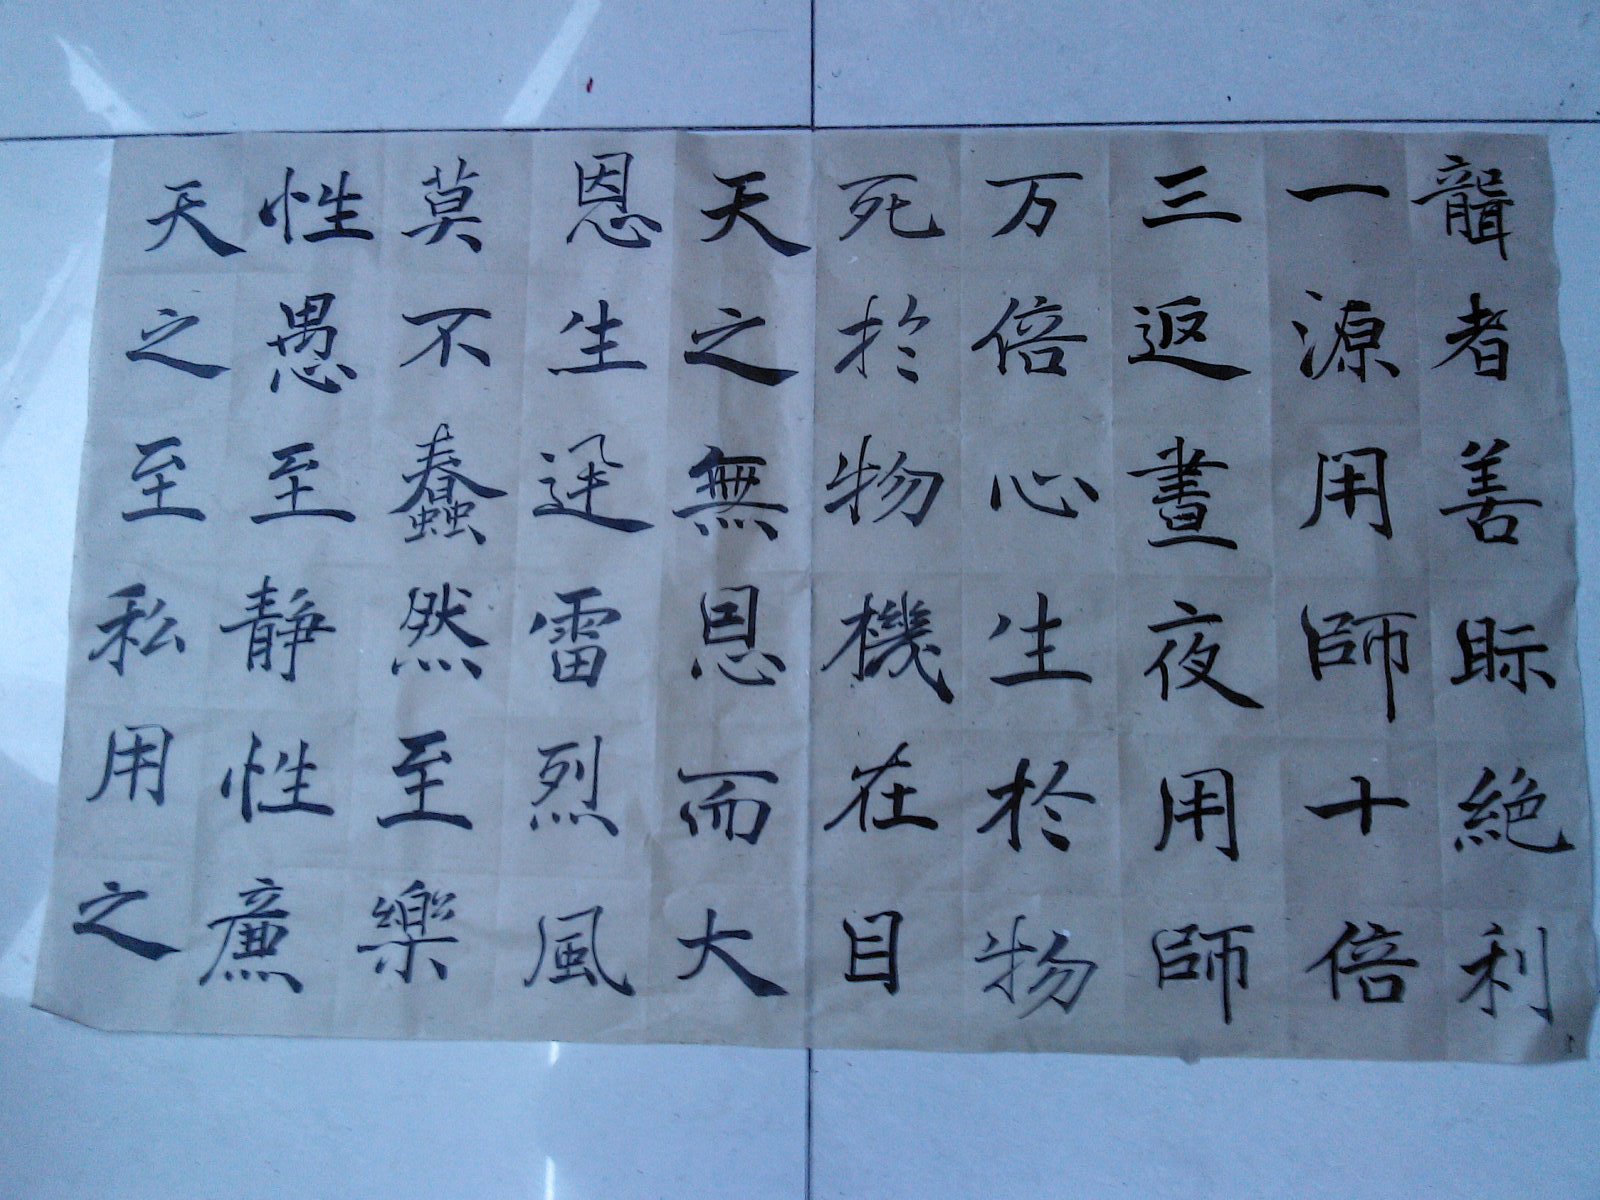 聾者善眎絕利
一源用師十倍
三返晝夜用師
万倍心生於物
死於物機在目
天之無恩而大
恩生迅雷烈風
莫不蠢然至樂
性愚至靜性廉
天之至私用之